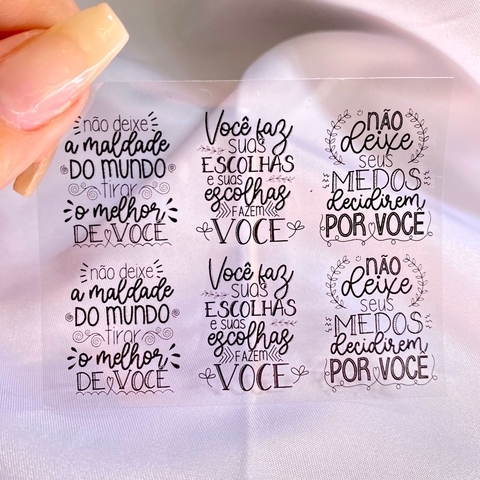 não deixe
a maldade
DO MUNDO
tirar
o melhor
DE VOCÊ
Você faz
suas
ESCOLHAS
e suas
escolhas
FAZEM
VOCÊ
NÃO
deixe
seus
MEDOS
decidirem
POR VOCÊ
não deixe
a maldade
DO MUNDO
tirar
o melhor
DE VOCÊ
Você faz
suas
ESCOLHAS
e suas
escolhas
FAZEM
VOCÊ
NÃO
deixe
seus
MEDOS
decidirem
POR VOCÊ